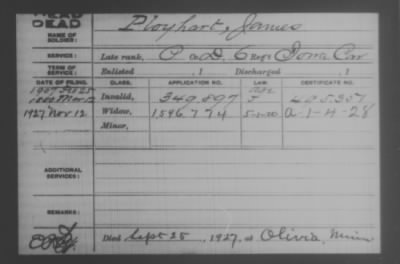 DEAD
DEAD
NAME OF SOLDIER: Ployhart, James
SERVICE: Late rank, P Co. D, 6 Reg't Iowa Cav
TERM OF SERVICE: Enlisted , 1 Discharged , 1
DATE OF FILING. CLASS. APPLICATION NO. LAW. CERTIFICATE NO.
1907
1880 Mar 12 Invalid, 349,897 405.351
1927 Nov 12. Widow, 1596774 5-1-20 A-1-4-28
Minor,
ADDITIONAL SERVICES:
REMARKS:
Died Sept 25, 1927, at Olivia, Minn